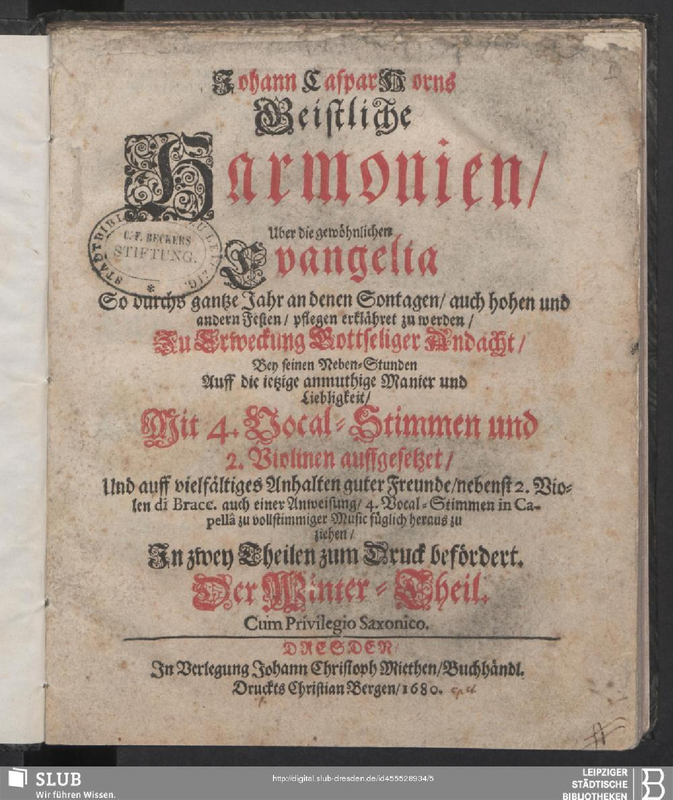 Johann Caspar Horns
Geistliche
Harmonien/
Uber die gewöhnlichen
Evangelia
So durchs gantze Jahr an denen Sontagen/ auch hohen und
andern Festen/ pflegen erklähret zu werden/
Zu Erweckung Gottseliger Andacht/
Bey seinen Neben-Stunden
Auff die ietzige anmuthige Manier und
Liebligkeit/
Mit 4. Vocal-Stimmen und
2. Violinen auffgesetzet/
Und auff vielfältiges Anhalten guter Freunde/nebenst 2. Vio-
len di Brace. auch einer Anweisung/ 4. Vocal-Stimmen in Ca-
pellâ zu vollstimmiger Music füglich heraus zu
ziehen/
In zwey Theilen zum Druck befördert.
Der Winter-Theil.
Cum Privilegio Saxonico.
DRESDEN/
In Verlegung Johann Christoph Miethen/Buchhändl.
Druckts Christian Bergen/1680.
C. F. BECKERS
STIFTUNG.
SLUB
Wir führen Wissen.
http://digital.slub-dresden.de/id455528934/5
LEIPZIGER
STÄDTISCHE
BIBLIOTHEKEN